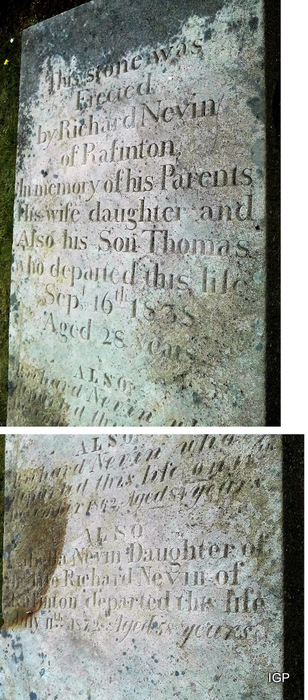 This stone was
Erected
by Richard Nevin
of Rafinton,
In memory of his Parents
his wife daughter and
Also his Son Thomas
who departed this life
Sept 16th 1838
Aged 28 years
ALSO
Richard Nevin who
departed this life
ALSO
Richard Nevin who
departed this life
Aged years
ALSO
Nevin Daughter of
Richard Nevin of
Rafinton departed this life
11th Aged years
IGP